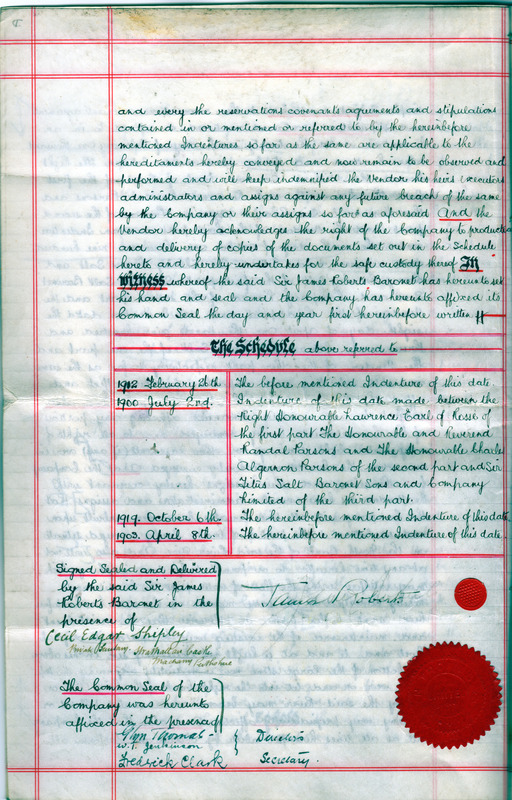 and every the reservations covenants agreements and stipulations
contained in or mentioned or referred to by the hereinbefore
mentioned Indentures so far as the same are applicable to the
hereditaments hereby conveyed and now remain to be observed and
performed and will keep indemnified the Vendor his heirs executors
administrators and assigns against any future breach of the same
by the Company or their assigns so far as aforesaid And the
Vendor hereby acknowledges the right of the Company to production
and delivery of copies of the documents set out in the Schedule
hereto and hereby undertakes for the safe custody thereof In
Witness whereof the said Sir James Roberts Baronet has hereunto set
his hand and seal and the Company has hereunto affixed its
Common Seal the day and year first hereinbefore written
The Schedule above referred to
1902 February 26th The before mentioned Indenture of this date.
1900 July 2nd. Indenture of this date made between the
Right Honourable Lawrence Earl of Rosse of
the first part The Honourable and Reverend
Randal Parsons and The Honourable Charles
Algernon Parsons of the second part and Sir
Titus Salt Baronet Sons and Company
Limited of the third part.
1919. October 6th. The hereinbefore mentioned Indenture of this date
1903. April 8th. The hereinbefore mentioned Indenture of this date
Signed Sealed and Delivered
by the said Sir James
Roberts Baronet in the
presence of
James Roberts
Cecil Edgar Shipley
Private Secretary. Strathallan Castle
Machany Perthshire
The Common Seal of the
Company was hereunto
affixed in the presence of
Glyn Thomas
W. T. Jenkinson
Directors
Fredrick Clark Secretary.